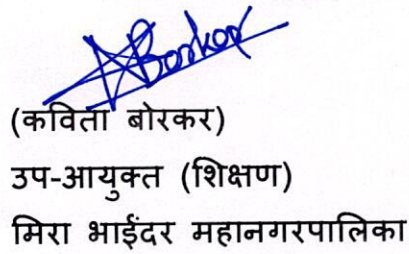 Borkar
(कविता बोरकर)
उप-आयुक्त (शिक्षण)
मिरा भाईंदर महानगरपालिका